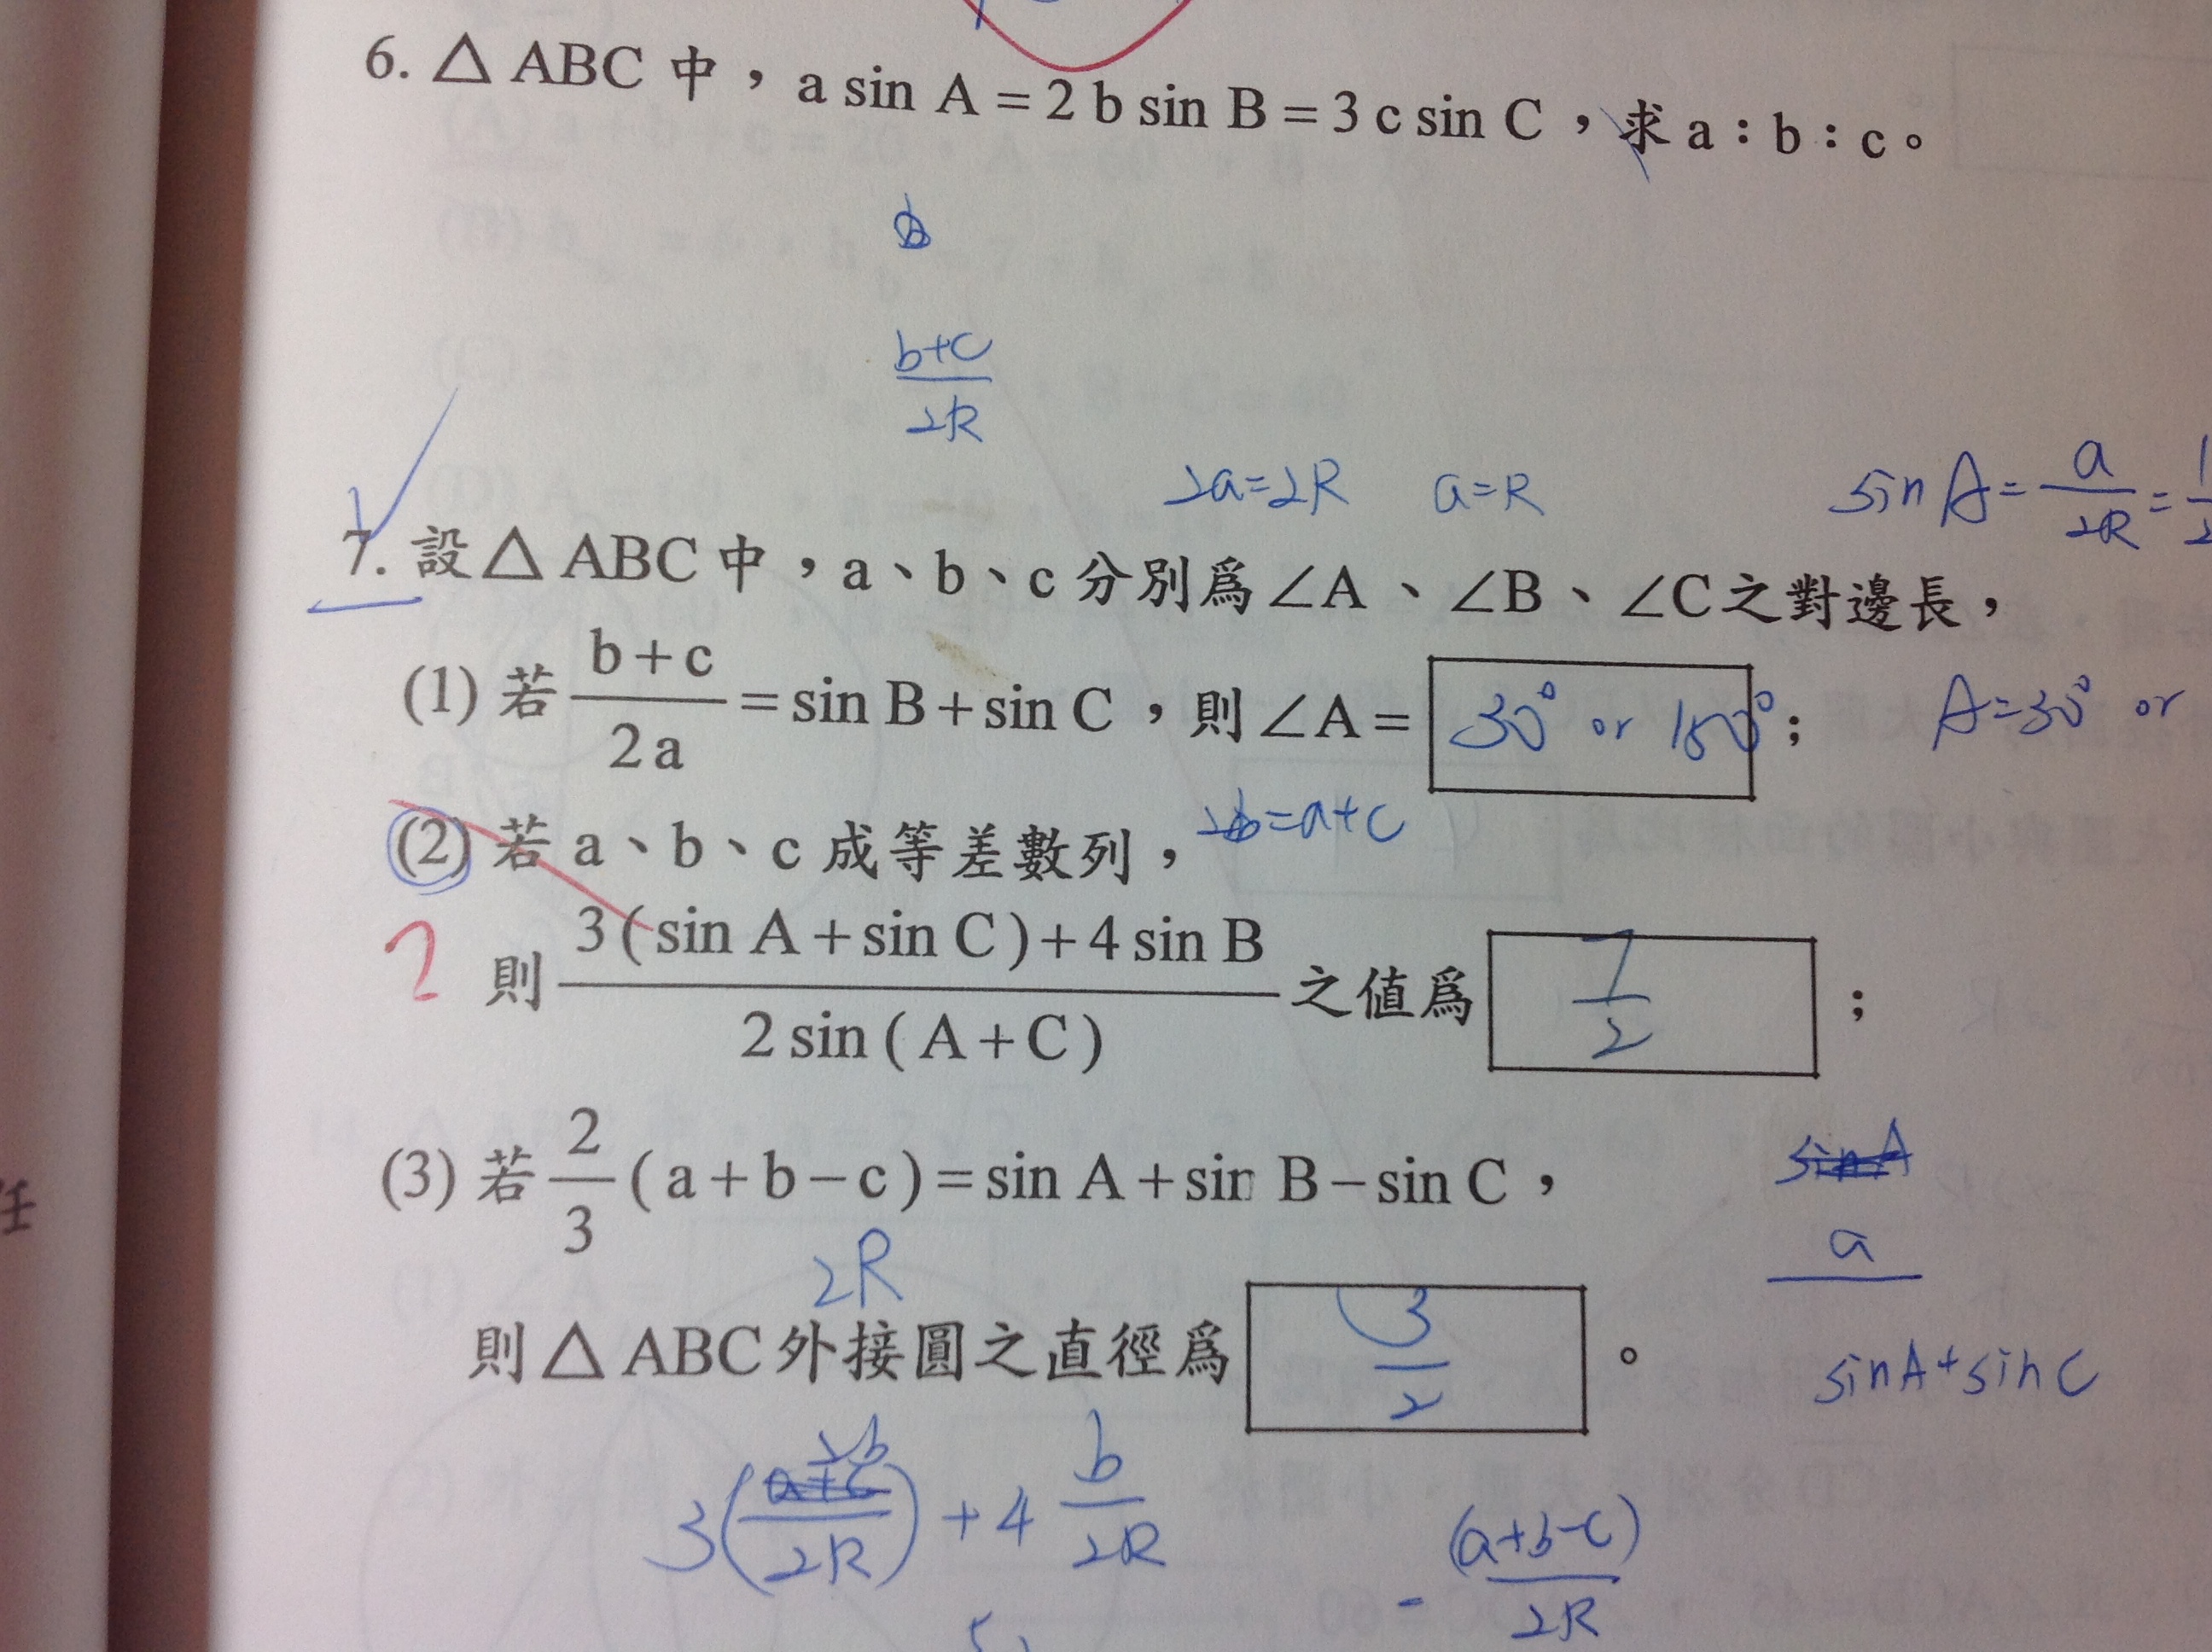 6. △ABC 中，a sin A = 2 b sin B = 3 c sin C，求 a：b：c。
b+c
2R
2a=2R a=R sin A = a/2R = 1/2
7. 設△ABC 中，a、b、c 分別為∠A、∠B、∠C之對邊長，
(1) 若 (b+c)/(2a) = sin B + sin C，則 ∠A = 30° or 150°； A=30° or
(2) 若 a、b、c 成等差數列， 2b=a+c
2 則 (3(sin A + sin C)+4 sin B)/(2 sin(A+C)) 之值為 7/2；
(3) 若 2/3 (a+b−c) = sin A + sin B − sin C，
sinA
a
2R
則△ABC外接圓之直徑為 3/2。
sinA+sinC
3(2b a+c/2R)+4 b/2R
- (a+b-c)/2R
任